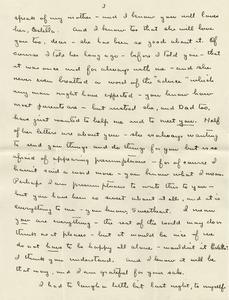 3
speak of my mother - and I know you will love
her, Estelle. And I know too that she will love
you too, dear - she has been so good about it. Of
course I told her long ago - before I told you - that
it was once and for always with me - and she
never even breathed a word of the advice - which
any man might have expected - you know how
most parents are - but instead she, and Dad too,
have just wanted to help me and to meet you. Half
of her letters are about you - she is always wanting
to send you things and do things for you but is so
afraid of appearing presumptuous - for of course I
haven't said a word more - you know what I mean.
Perhaps I am presumptuous to write this to you -
but you have been so sweet about it all, and it is
everything to me - you know, Sweetheart, I
you are everything - the rest of the world may
things not so please - but it would be me - if we
do not have to be happy all alone - wouldn't it
I think you understand, and I know it will be
that way, and I am grateful for your sake.
I had to laugh a little bit last night, to myself